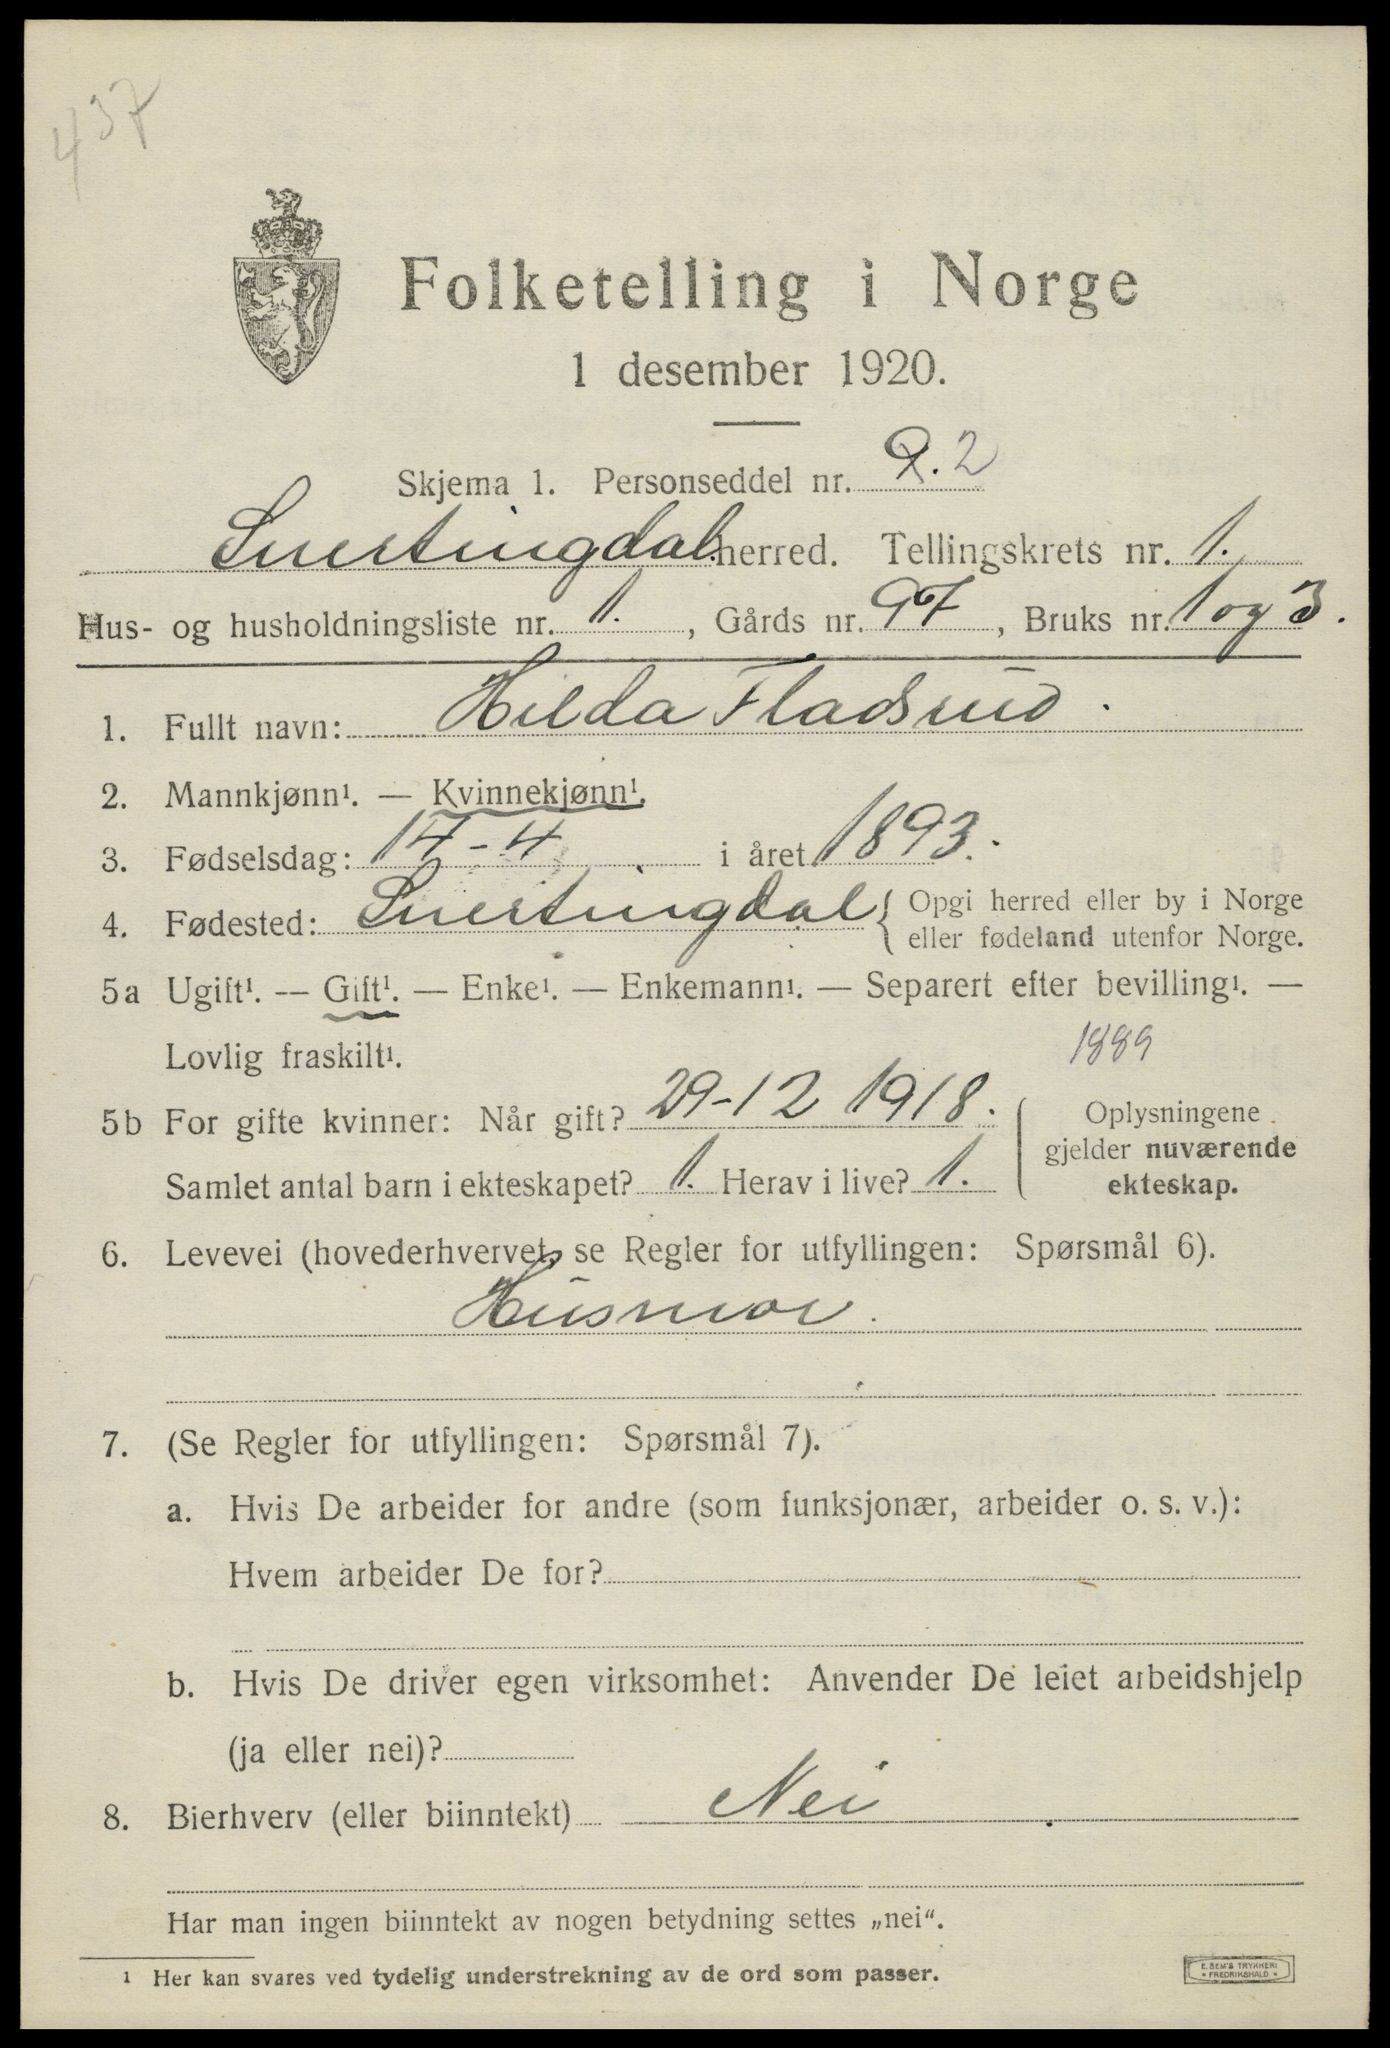 437
Folketelling i Norge
1 desember 1920.
Skjema 1. Personseddel nr. 2. 2
Snertingdal. herred. Tellingskrets nr. 1.
Hus- og husholdningsliste nr. 1. , Gårds nr. 97 , Bruks nr. 1 og 3.
1. Fullt navn: Hilda Fladsrud.
2. Mannkjønn¹. — Kvinnekjønn¹.
3. Fødselsdag: 14-4 i året 1893.
4. Fødested: Snertingdal { Opgi herred eller by i Norge
eller fødeland utenfor Norge.
5a Ugift¹. — Gift¹. — Enke¹. — Enkemann¹. — Separert efter bevilling¹. —
Lovlig fraskilt¹.
1889
5b For gifte kvinner: Når gift? 29-12 1918.
Samlet antal barn i ekteskapet? 1. Herav i live? 1.
Oplysningene
gjelder nuværende
ekteskap.
6. Levevei (hovederhvervet, se Regler for utfyllingen: Spørsmål 6).
Husmor.
7. (Se Regler for utfyllingen: Spørsmål 7).
a. Hvis De arbeider for andre (som funksjonær, arbeider o. s. v.):
Hvem arbeider De for?
b. Hvis De driver egen virksomhet: Anvender De leiet arbeidshjelp
(ja eller nei)?
8. Bierhverv (eller biinntekt) Nei
Har man ingen biinntekt av nogen betydning settes „nei“.
¹ Her kan svares ved tydelig understrekning av de ord som passer.
E. SEM'S TRYKKERI
FREDRIKSHALD